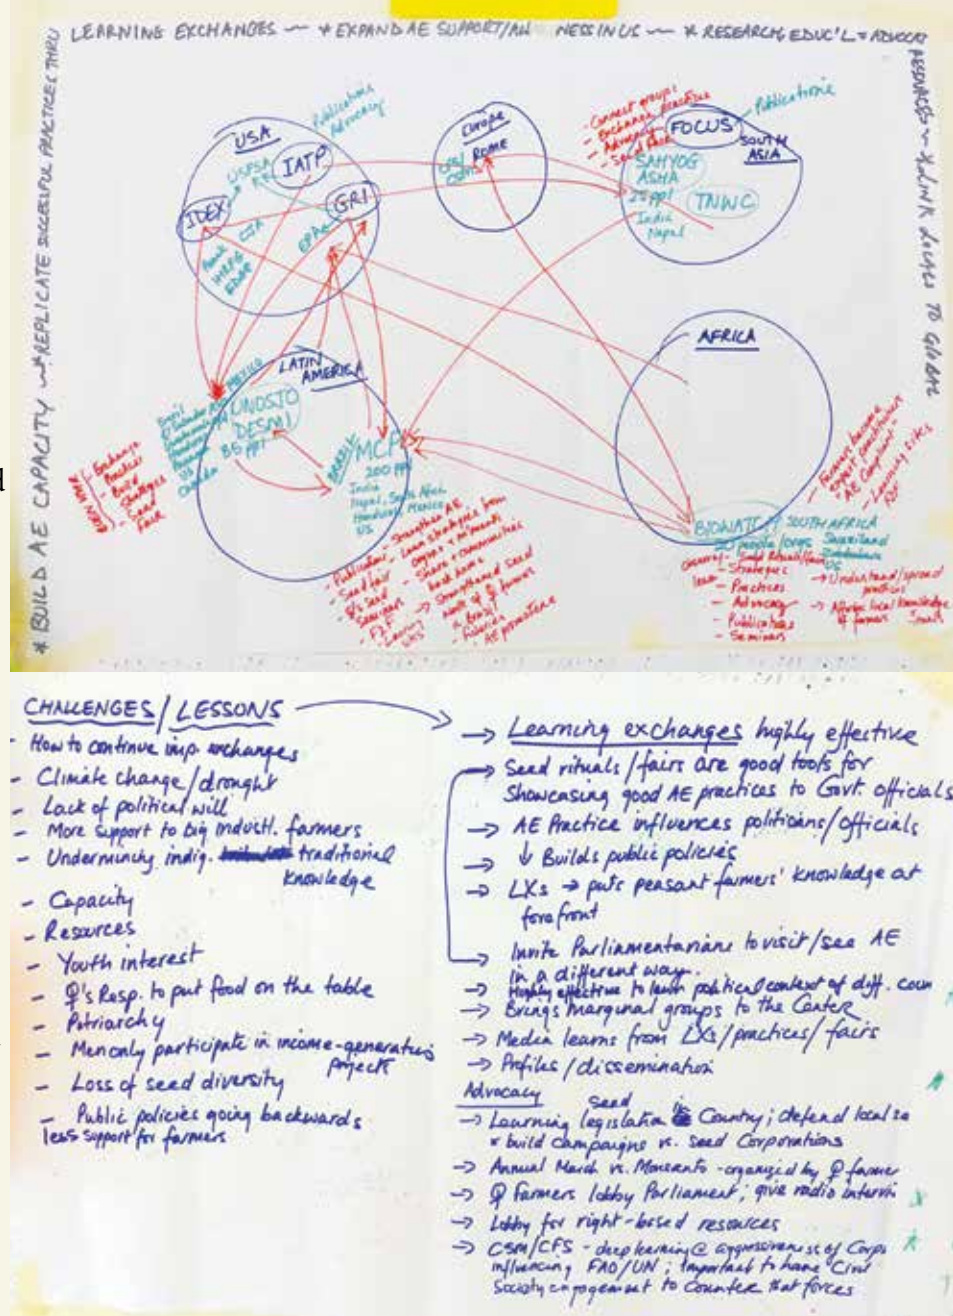 LEARNING EXCHANGES ~ * EXPAND AE SUPPORT/AW NESS IN US ~ * RESEARCH, EDUC'L + ADVOCA
RESOURCES ~ * LINK LOCALS TO GLOBAL
* BUILD AE CAPACITY ~ * REPLICATE SUCCESSFUL PRACTICES THRU
USA
Publications
Advocacy
USFSA
IATP
IDEX
GRI
CJA
EPA
Europe
ROME
- Connect groups
- Exchange practices
- Advocacy
- Seed Fair
FOCUS
Publications
SOUTH
ASIA
SAHYOG
ASHA
25 ppl
TNWC
India
Nepal
AFRICA
LATIN
AMERICA
MEXICO
UNOSJO
DESMI
85 ppl
Brazil
US
- Exchange
- Practices
- Build
- Challenges
- Seed
Fair
BRAZIL
MCP
200 ppl
India
Nepal, South Africa
Honduras, Mexico
US
- Publication
- Seed fair
- ♀'s seed
- Seminars
- F2F
- Learning
- Learn strategies from
- Share w communities
back home
- Strengthened seed
work of ♀ farmers
in Brazil
- AE promoters
BIOWATCH SOUTH AFRICA
20 people/orgs Swaziland
Zimbabwe
US
- Farmers become
expert practitioners
- Learning sites
for
- Seed Rituals/Fairs
- Strategies
- Practices
- Advocacy
- Publications
- Seminars
learn
→ Understand/spread
practices
→ Affirms local knowledge
of farmers
CHALLENGES/LESSONS
- How to continue imp. exchanges
- Climate change/drought
- Lack of political will
- More support to big Industl. farmers
- Undermining indig. traditional
knowledge
- Capacity
- Resources
- Youth interest
- ♀'s Resp. to put food on the table
- Patriarchy
- Men only participate in income-generating
projects
- Loss of seed diversity
- Public policies going backwards
less support for farmers
→ Learning exchanges highly effective
→ Seed rituals/fairs are good tools for
Showcasing good AE practices to Govt. officials
→ AE Practice influences politicians/officials
→ ↓ Builds public policies
→ LXs → puts peasant farmers' knowledge at
forefront
→ Invite Parliamentarians to visit/see AE
in a different way.
→ Highly effective to learn political context of diff. coun
→ Brings marginal groups to the Center
→ Media learns from LXs/practices/fairs
→ Profiles/dissemination
Advocacy
→ Learning seed legislation in Country; defend local se
+ build campaigns vs. seed Corporations
→ Annual March vs. Monsanto - organized by ♀ farmer
→ ♀ Farmers lobby Parliament; give radio intervi
→ Lobby for right-based resources
→ CSM/CFS - deep learning @ aggressiveness of Corps
influencing FAO/UN; important to have Civil
Society engagement to counter that forces